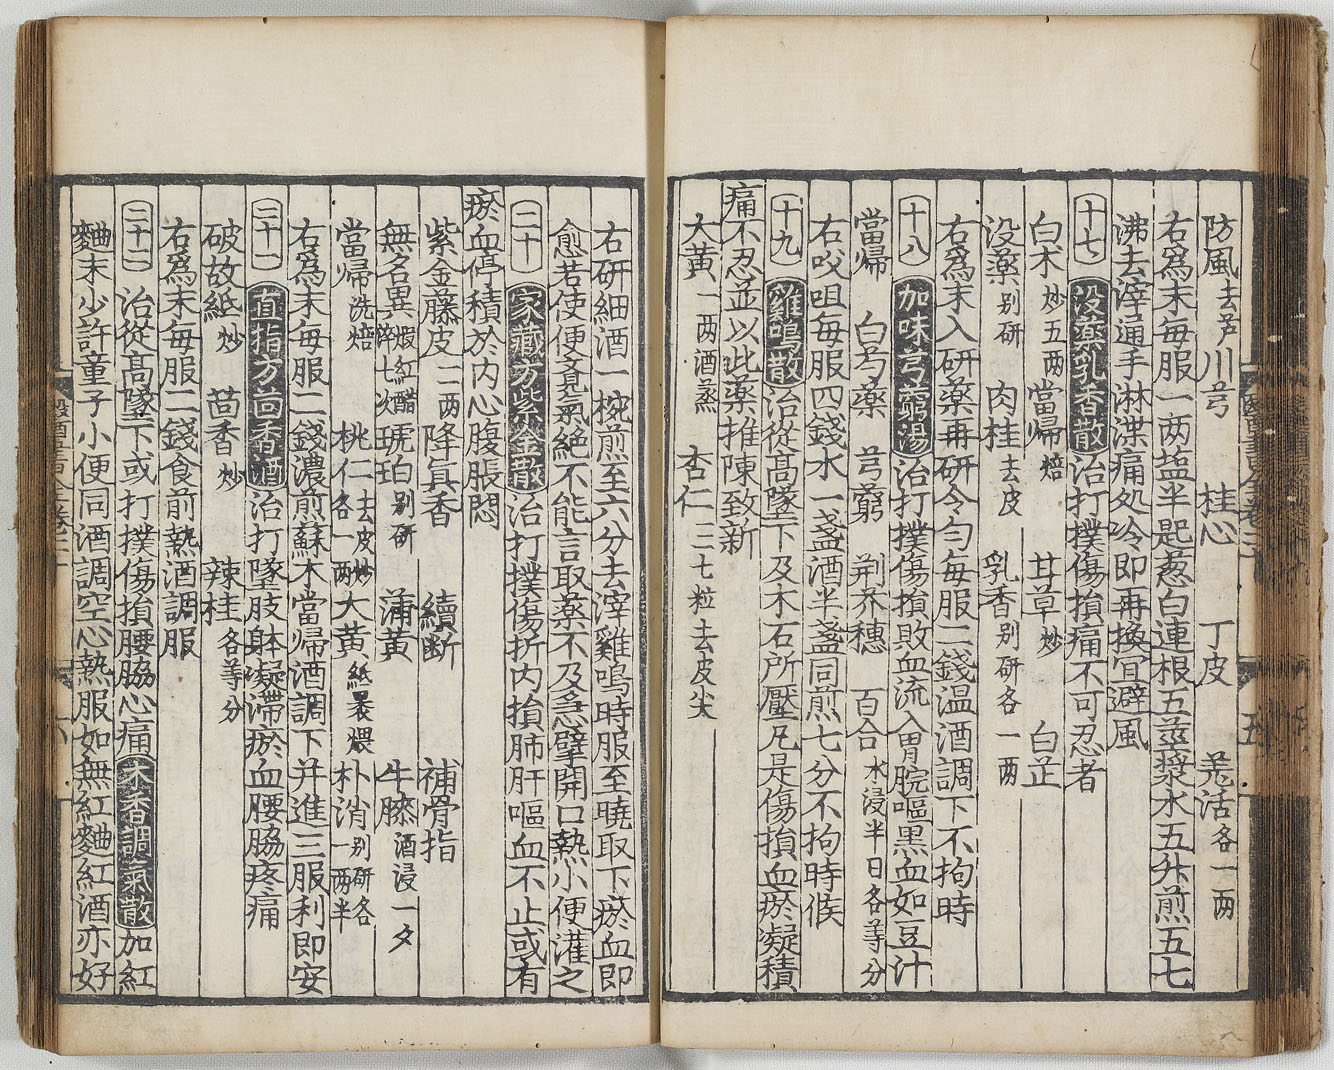 防風去芦 川芎 桂心 丁皮 羌活各一两
右爲末每服一两塩半匙葱白連根五莖漿水五升煎五七
沸去滓通手淋渫痛処吟即再換宜避風
十七 没藥乳香散 治打撲傷損痛不可忍者
白朮炒五两 當帰焙 甘草炒 白芷
没藥别研 肉桂去皮 乳香别研各一两
右爲末入研藥再研令匀每服二錢温酒調下不拘時
十八 加味芎藭湯 治打撲傷損敗血流入胃脘嘔黒血如豆汁
當帰 白芍藥 芎藭 荆芥穗 百合水浸半日各等分
右㕮咀每服四錢水一盞酒半盞同煎七分不拘時候
十九 雞鳴散 治從髙墜下及木石所壓凡是傷損血瘀凝積
痛不忍並以此藥推陳致新
大黃一两酒蒸 杏仁三七粒去皮尖
右研細酒一椀煎至六分去滓雞鳴時服至曉取下瘀血即
愈若使便覺氣絶不能言取藥不及急擘開口熱小便灌之
二十 家藏方紫金散 治打撲傷折内損肺肝嘔血不止或有
瘀血停積於内心腹脹悶
紫金藤皮二两 降真香 續断 補骨指
無名異煆紅醋淬七次 琥珀别研 蒲黃 牛膝酒浸一夕
當帰洗焙 桃仁去皮炒各一两 大黃紙裹煨 朴消别研各一两半
右爲末每服二錢濃煎蘇木當帰酒調下并進三服利即安
二十一 直指方茴香酒 治打墜肢躰凝滯瘀血腰脇疼痛
破故紙炒 茴香炒 辣桂各等分
右爲末每服二錢食前熱酒調服
二十二 治從髙墜下或打撲傷損腰脇心痛木香調氣散加紅
麯末少許童子小便同酒調空心熱服如無紅麯紅酒亦好